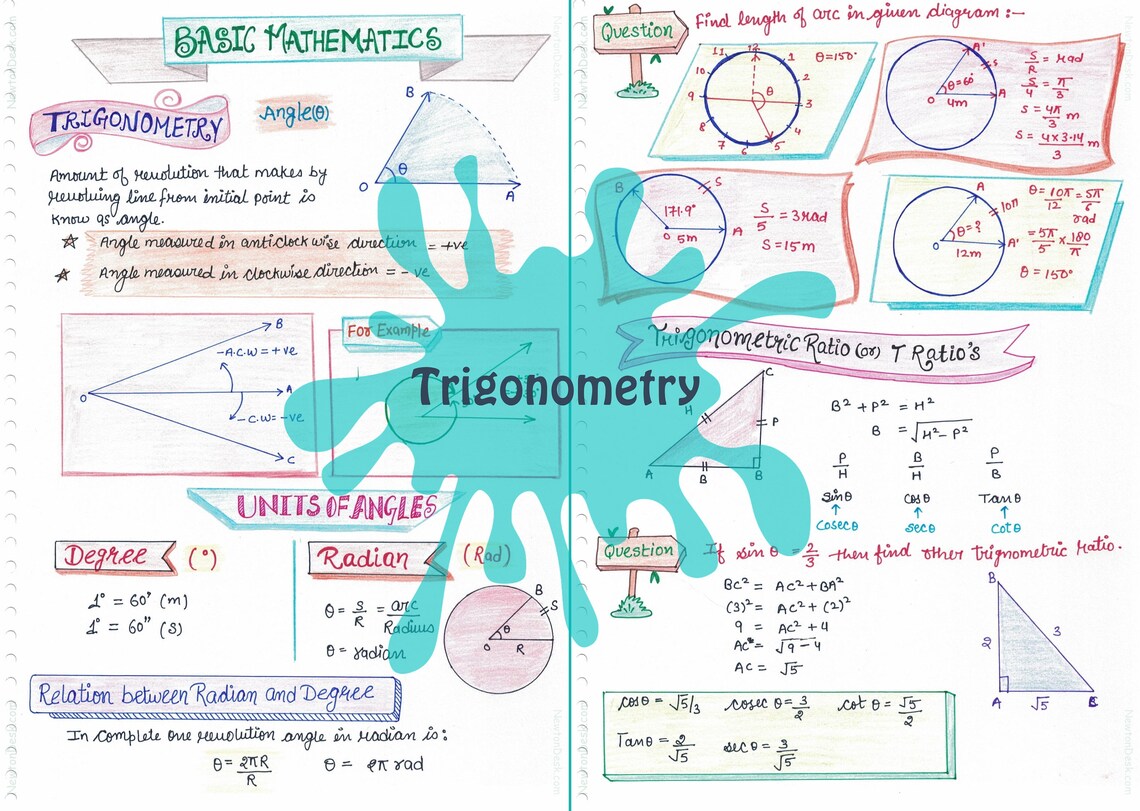 BASIC MATHEMATICS
TRIGONOMETRY
Angle(θ)
B
θ
O
A
Amount of revolution that makes by
revolving line from initial point is
know as angle.
Angle measured in anticlockwise direction = +ve
Angle measured in clockwise direction = -ve
B
-A.C.W = +ve
O
A
-C.W = -ve
C
For Example
Trigonometry
UNITS OF ANGLES
Degree (°)
1° = 60' (m)
1° = 60" (s)
Radian (Rad)
θ = S/R = arc/Radius
θ = radian
B
S
θ
O
R
Relation between Radian and Degree
In complete one revolution angle in radian is:
θ = 2πR/R θ = 2π rad
Question
Find length of arc in given diagram :-
11 12 1
10 2
9 3
8 4
7 6 5
θ
θ=150°
A'
S
θ=60°
O
4m
A
S/R = rad
S/4 = π/3
S = 4π/3 m
S = 4×3.14/3 m
B
S
171.9°
O
5m
A
S/5 = 3rad
S = 15m
A
10π
θ=?
O
A'
12m
θ = 10π/12 = 5π/6 rad
= 5π/5 × 180/π
θ = 150°
Trigonometric Ratio (or) T Ratio's
C
H
P
A
B
B
B² + P² = H²
B = √H²-P²
P/H B/H P/B
sinθ cosθ Tanθ
↑ ↑ ↑
Cosecθ secθ cotθ
Question
If sin θ = 2/3 then find other trignometric ratio.
BC² = AC² + BA²
(3)² = AC² + (2)²
9 = AC² + 4
AC = √9-4
AC = √5
B
2
3
A
√5
cosθ = √5/3 cosec θ = 3/2 cot θ = √5/2
Tanθ = 2/√5 secθ = 3/√5
NewtonDesk.com